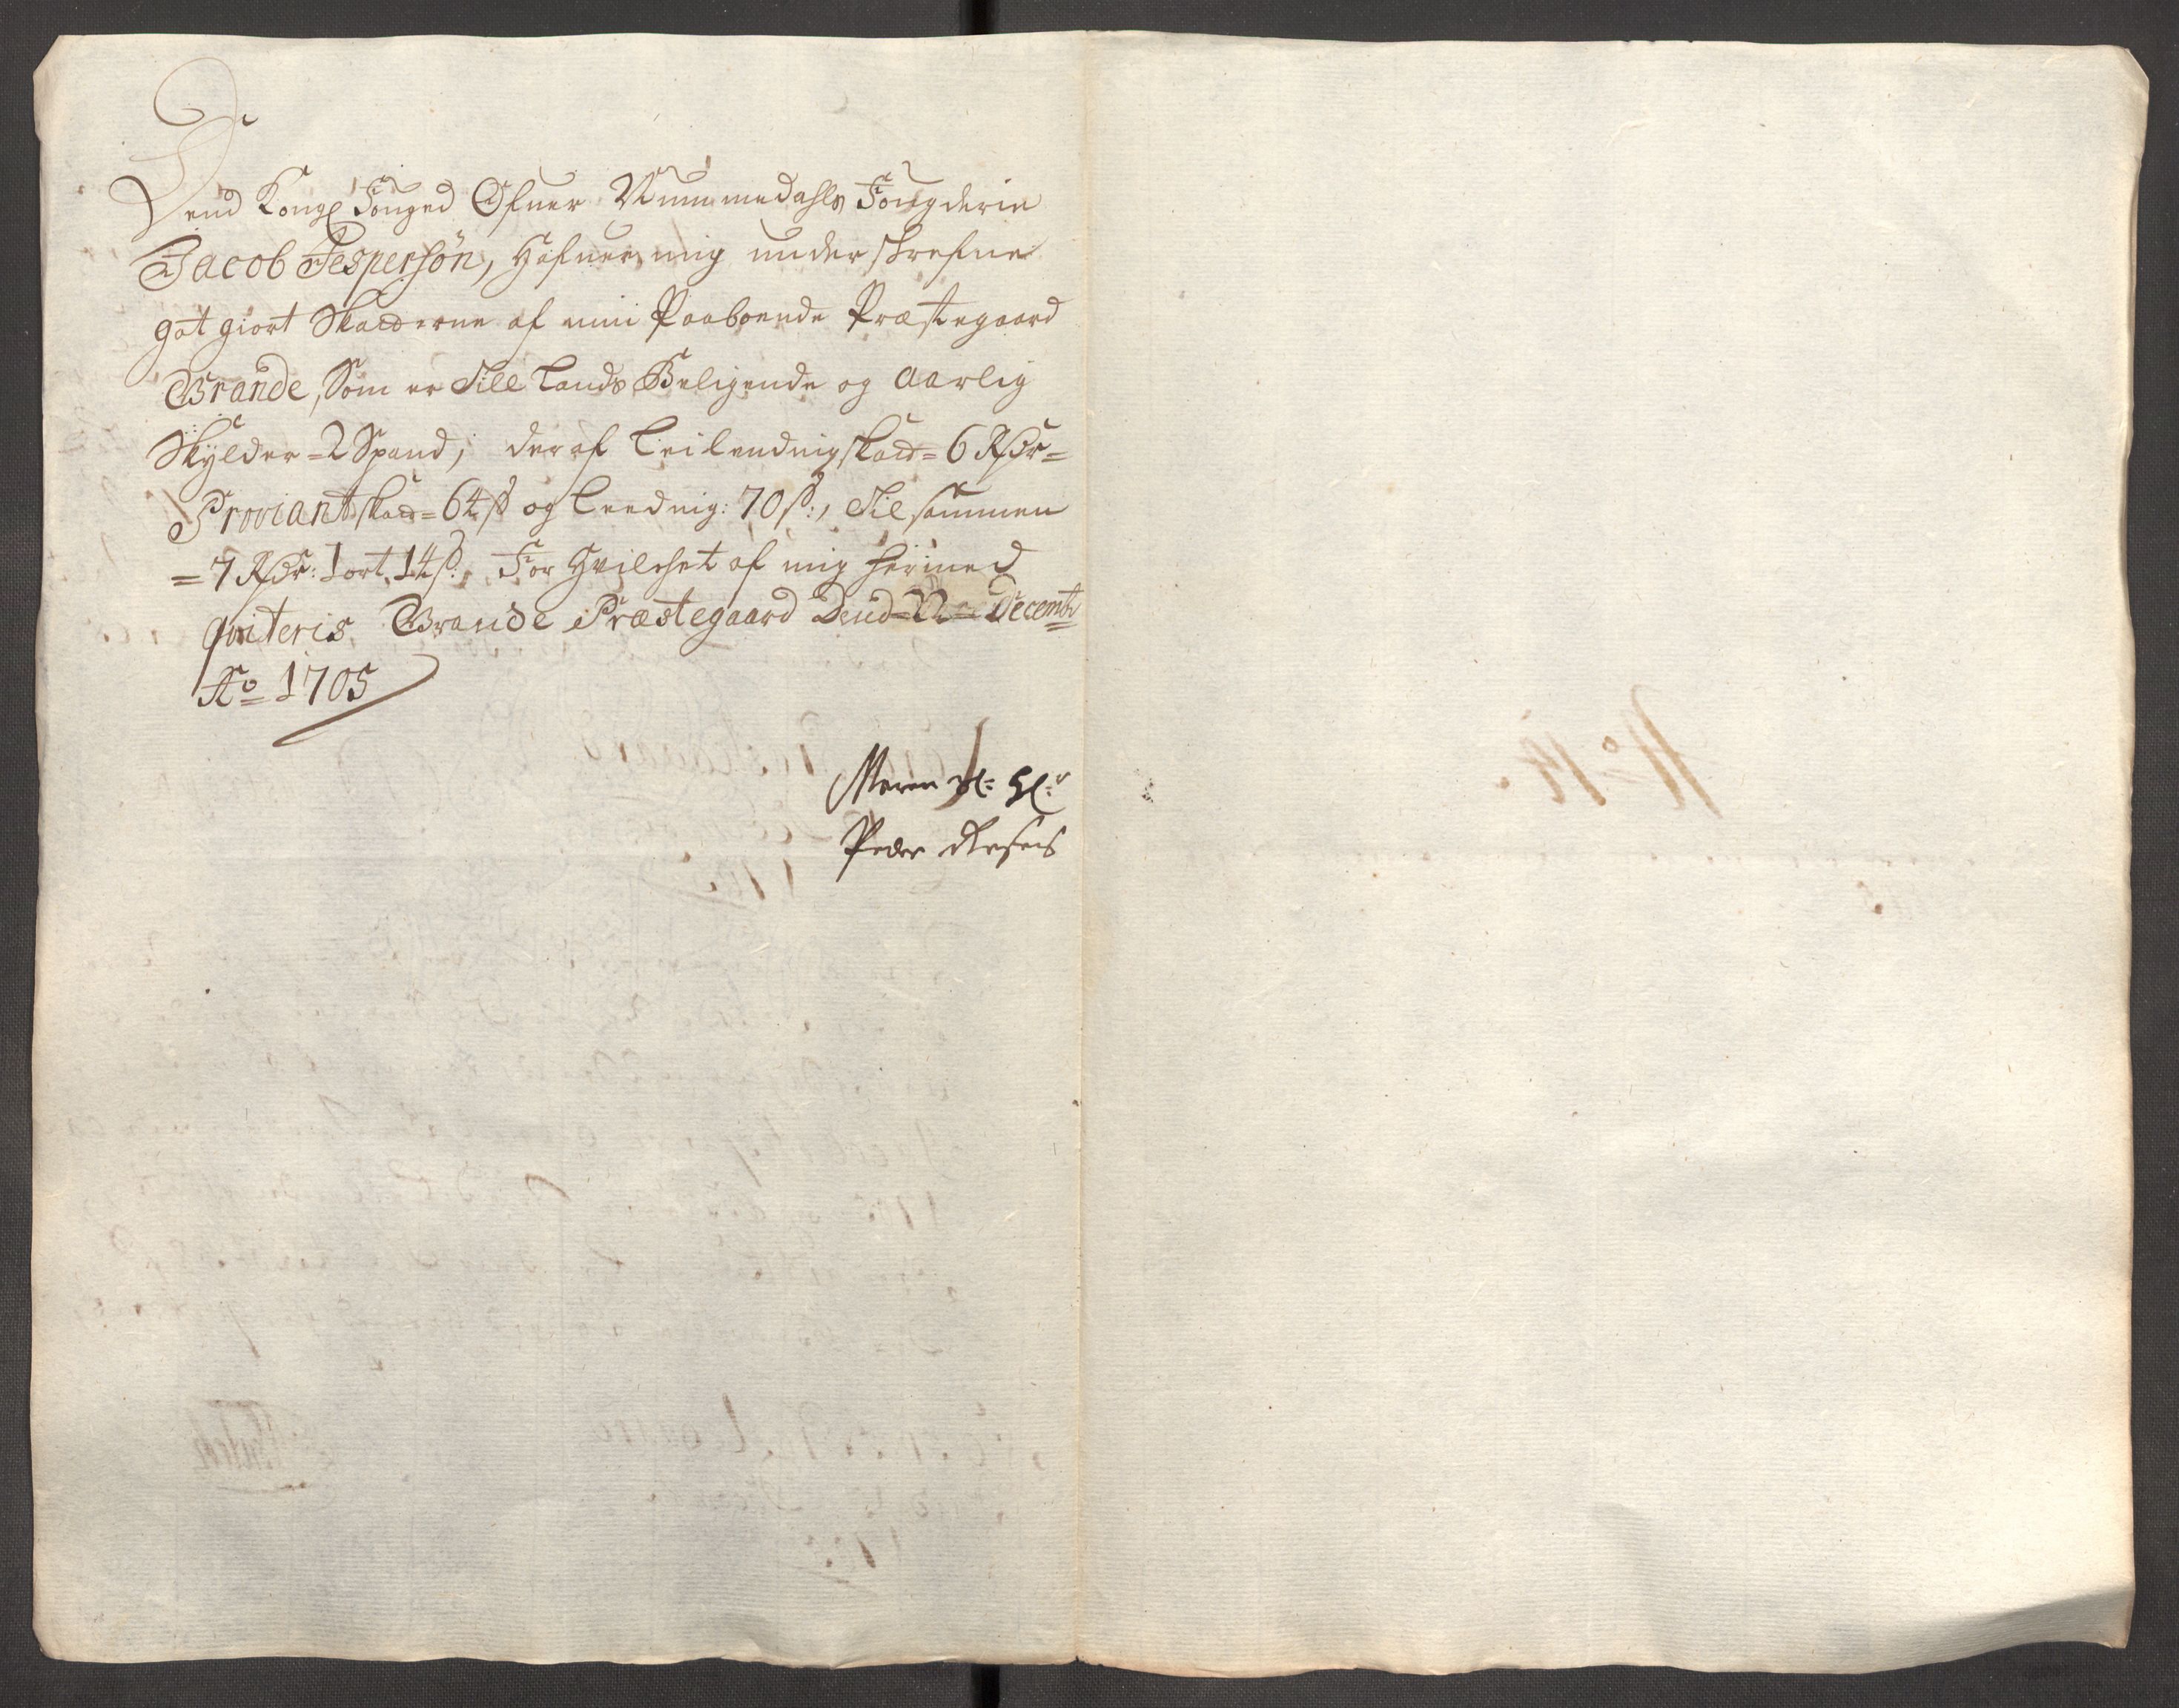 Dend Kongl Fouged Ofuer Nummedahls Fougderie
Jacob Jespersøn, Hafuer mig underskrefne
got giort Skatterne af min Paaboende Præstegaard
Brande, Som er Till Lands Beligende og Aarlig
Skylder = 2 Spand, deraf Leilendingskatt = 6 Rdr =
Proviantskatt = 64 s og Leeding: 70 s:, Tilsammen
= 7 Rdr: 1 ort 14 s: For Hvilchet af mig hermed
qviteris Brande Præstegaard Dend Decembr
Ao 1705
Maren Sl: Hr
Peder
No 14.